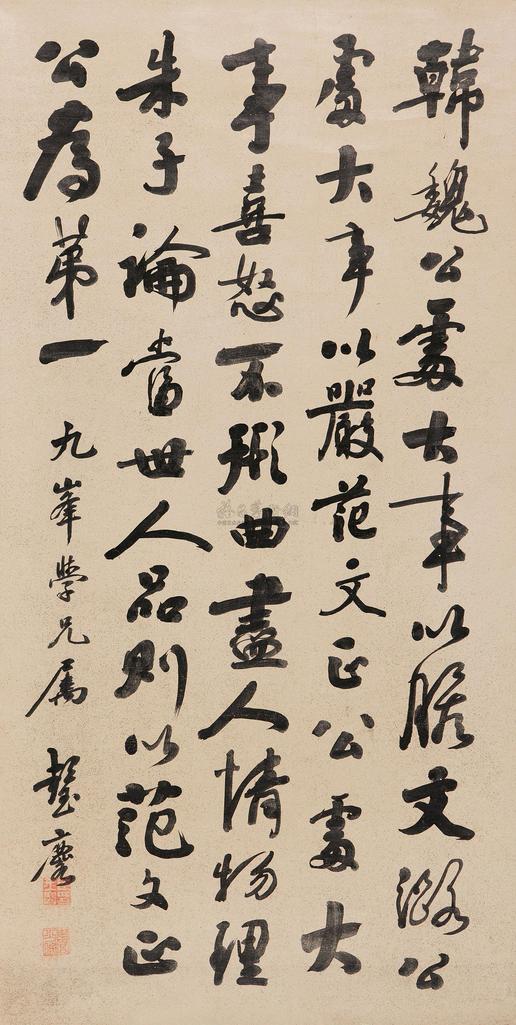 韓魏公處大事以膽文潞公
處大事以嚴范文正公處大
事喜怒不形曲盡人情物理
朱子論當世人品則以范文正
公為第一
九峯學兄屬